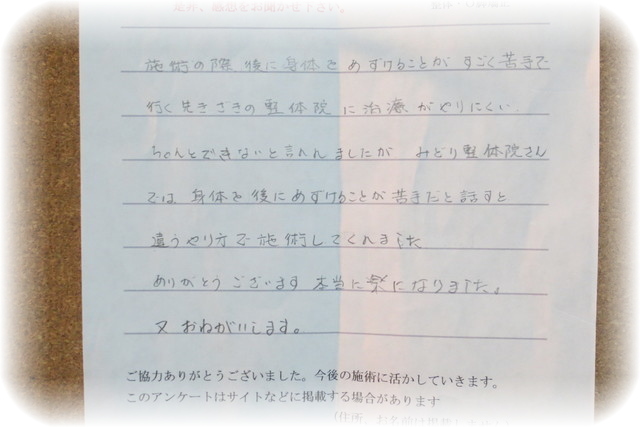 是非、感想をお聞かせ下さい。
施術の際 後に身体をあずけることが すごく苦手で
行く先きざきの整体院 に治療がやりにくい
ちゃんとできないと言われましたが みどり整体院さん
では 身体を後にあずけることが苦手だと話すと
違うやり方で施術してくれました
ありがとうございます 本当に楽になりました。
又おねがいします。
ご協力ありがとうございました。今後の施術に活かしていきます。
このアンケートはサイトなどに掲載する場合があります